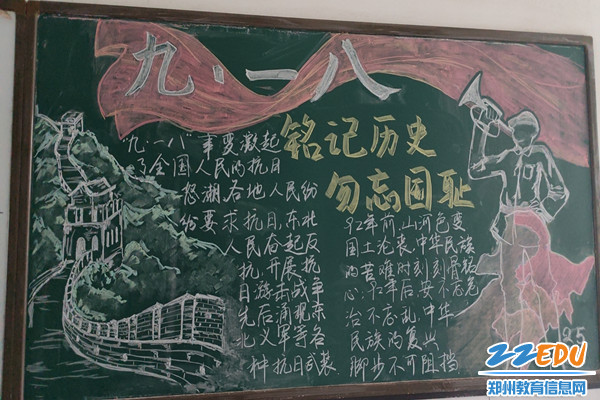 九·一八
铭记历史
勿忘国耻
"九·一八"事变激起
了全国人民的抗日
怒潮.各地人民纷
纷要求抗日,东北
人民奋起反
抗.开展抗
日游击战争
先后涌现东
北义军等各
种抗日武装.
92年前,山河色变
国土沦丧,中华民族
的苦难时刻刻骨铭
心;92年后,安不忘危
治不忘乱,中华
民族的复兴
脚步不可阻挡
22EDU
郑州教育信息网